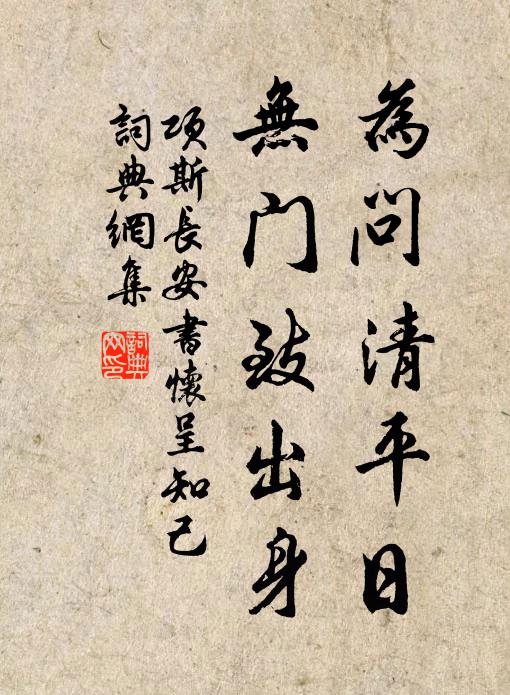 為問清平日
無門致出身
項斯長安書懷呈知己
詞典網集
詞典
网印